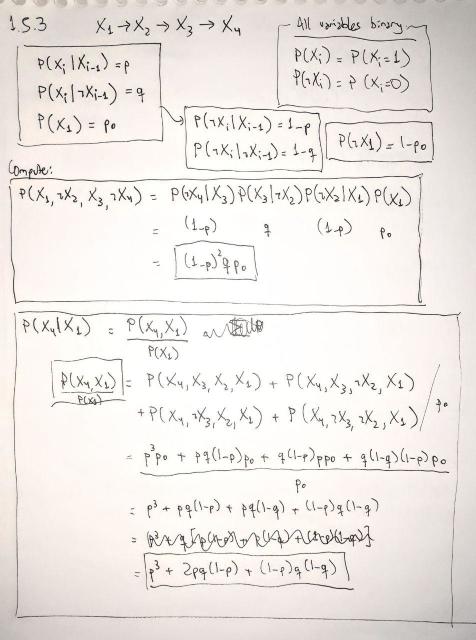 1.5.3 X₁ → X₂ → X₃ → X₄
All variables binary
P(Xᵢ) = P(Xᵢ=1)
P(¬Xᵢ) = P(Xᵢ=0)
P(Xᵢ|Xᵢ₋₁) = p
P(Xᵢ|¬Xᵢ₋₁) = q
P(X₁) = p₀
P(¬Xᵢ|Xᵢ₋₁) = 1-p
P(¬Xᵢ|¬Xᵢ₋₁) = 1-q
P(¬X₁) = 1-p₀
Compute:
P(X₁, ¬X₂, X₃, ¬X₄) = P(¬X₄|X₃) P(X₃|¬X₂) P(¬X₂|X₁) P(X₁)
= (1-p) q (1-p) p₀
= (1-p)² q p₀
P(X₄|X₁) = P(X₄, X₁) / P(X₁)
P(X₄, X₁) / P(X₁) = P(X₄, X₃, X₂, X₁) + P(X₄, X₃, ¬X₂, X₁)
+ P(X₄, ¬X₃, X₂, X₁) + P(X₄, ¬X₃, ¬X₂, X₁) / p₀
= p³p₀ + pq(1-p)p₀ + q(1-p)pp₀ + q(1-q)(1-p)p₀ / p₀
= p³ + pq(1-p) + pq(1-q) + (1-p)q(1-q)
= p³ + 2pq(1-p) + (1-p)q(1-q)